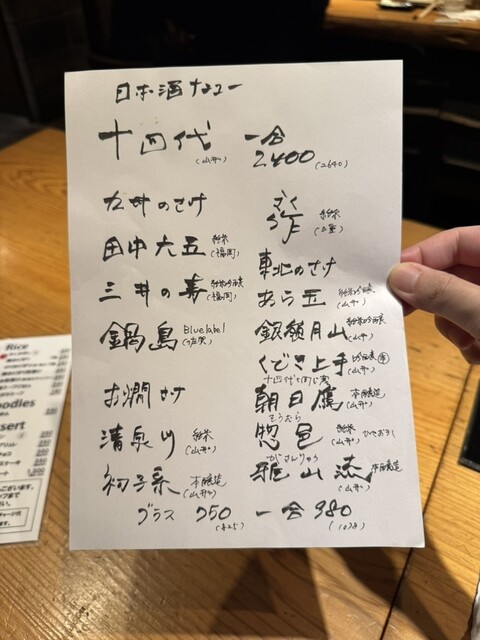 日本酒メニュー
十四代(山形) 一合 2400(2640)
九州のさけ
田中六五 純米(福岡)
三井の寿 純米吟醸(福岡)
鍋島 Blue label(佐賀)
お燗さけ
清泉川 純米(山形)
初孫 本醸造(山形)
ざく 作 純米(三重)
東北のさけ
あら玉 純米吟醸(山形)
銀嶺月山 純米吟醸(山形)
くどき上手 吟醸(山形)
十四代と同じ蔵
朝日鷹 本醸造(山形)
そうむら
惣邑 純米(山形) ひやおろし
がさんりゅう
雅山流 本醸造(山形)
グラス 750(825) 一合 980(1078)
Rice
oodles
ssert